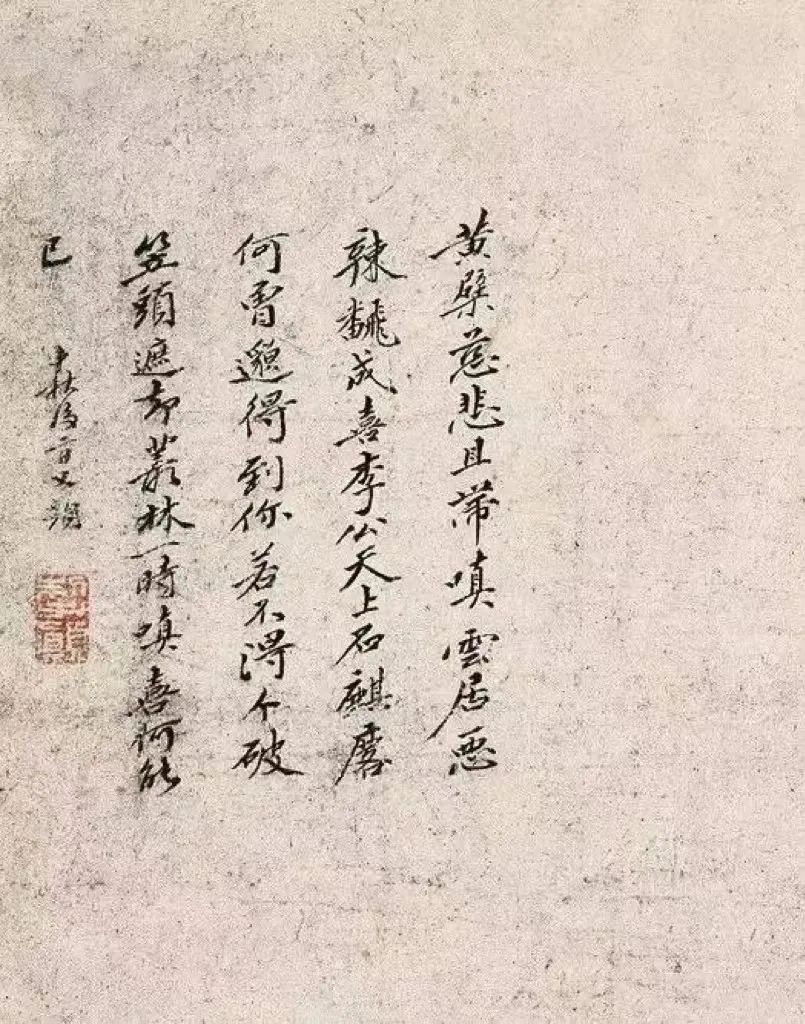 黄檗慈悲且帶嗔雲居惡
辣飜成喜李公天上石麒麐
何曾邈得到你若不得个破
笠頭遮却叢林一時嗔喜何能
已
中秋為